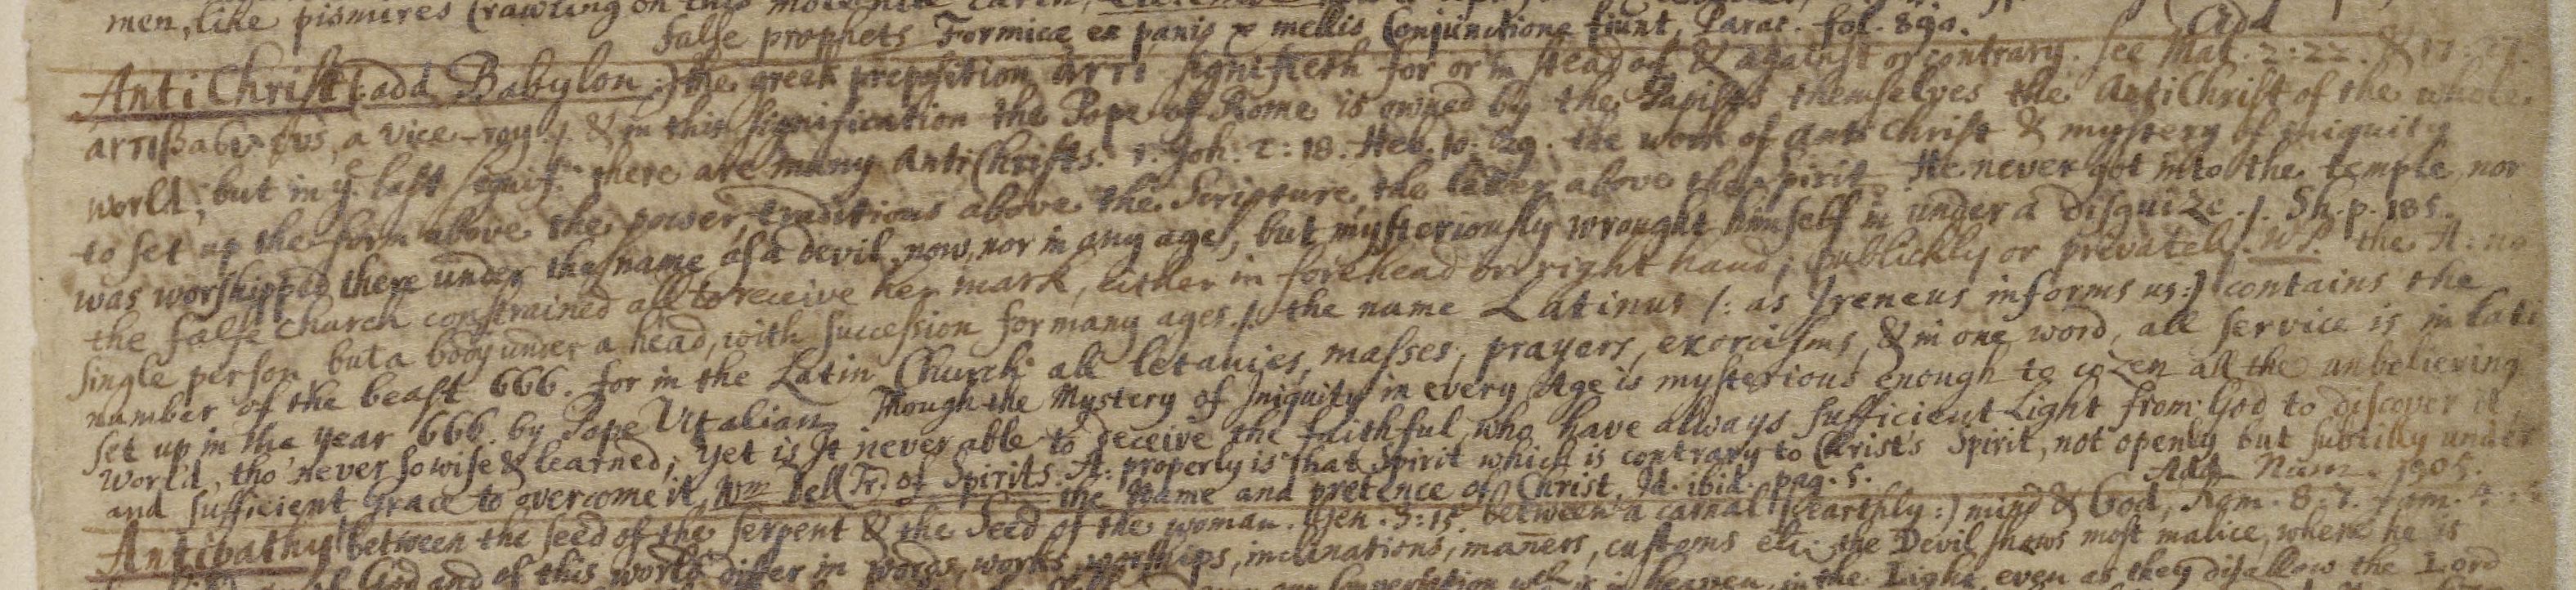 men, like pismires crawling on this
false prophets Formicæ ex panis & mellis Conjunctione fiunt, Parac. fol. 890. Add
AntiChrist (: add Babylon :) the greek preposition αντι signifieth for or in stead of & against or contrary. see Mat. 2:22. & 17:27.
a vice-roy ./. & in this signification the Pope of Rome is owned by the Papists themselves the AntiChrist of the whole
world; but in yᵉ last signif. there are many AntiChrists. 1. Joh. 2:18. Heb. 10:29. the work of anti Christ & mystery of iniquity
to set up the form above the power, traditions above the Scripture, the letter above the Spirit. He never got into the temple, nor
was worshipped there under the name of a devil, now, nor in any age, but mysteriously wrought himself in under a disguize ./. Sh. p. 185.
the false Church constrained all to receive her mark, either in forehead or right hand; publickly or privately. WP. the A: no
single person but a body under a head, with succession for many ages ./. the name Latinus (: as Ireneus informs us :) contains the
number of the beast 666. for in the Latin Church all letanies, masses, prayers, exorcisms, & in one word, all service is in lati
set up in the year 666. by Pope Vitalian. Though the Mystery of Iniquity in every Age is mysterious enough to cozen all the unbelieving
World, tho' never so wise & learned; yet is It never able to deceive the faithful, who have always sufficient Light from God to discover it,
and sufficient Grace to overcome it, Wm Dell Tr. of Spirits. A: properly is that Spirit which is contrary to Christ's Spirit, not openly but subtilly under
the Name and pretence of Christ, Id. ibid. pag. 5. Add Num. 1905.
Antipathy between the seed of the serpent & the Seed of the woman. Gen. 3:15. between a carnal (: earthly :) mind & God, Rom. 8:7.
God and of this world differ in words, works, worships, inclinations, maners, customs etc. the Devil shews most malice, where he is
in heaven, in the Light, even as they disallow the Lord